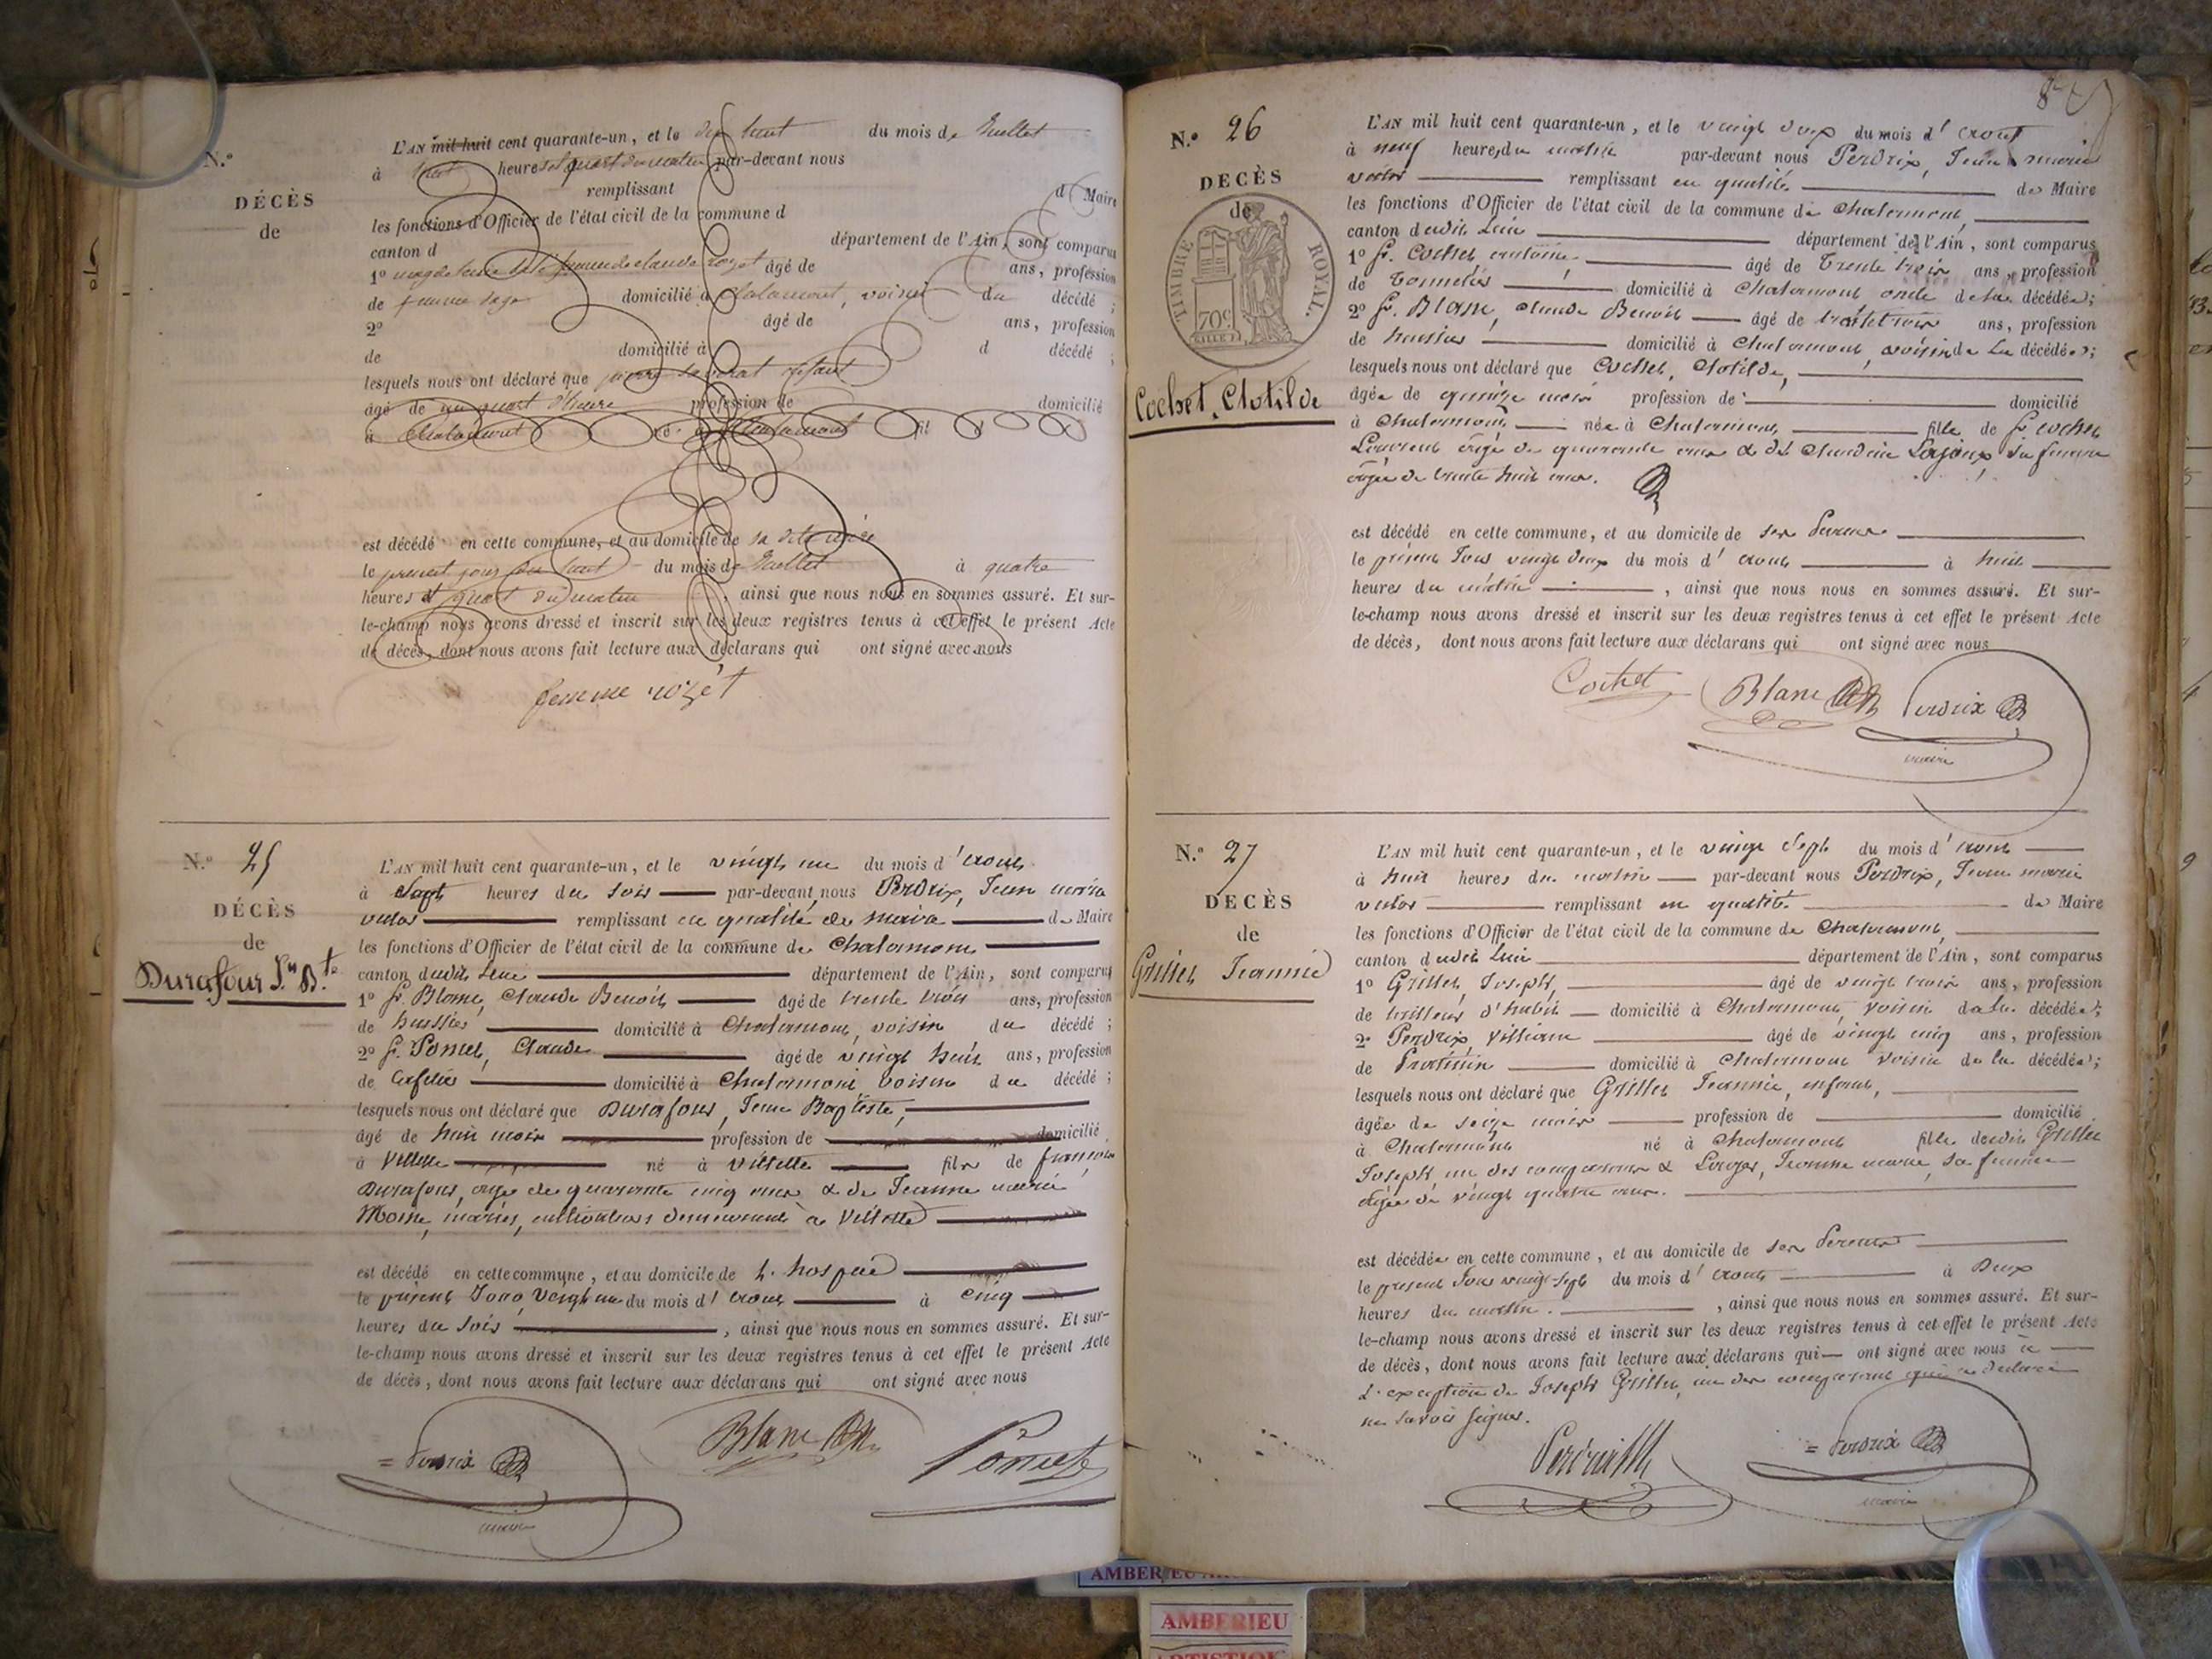 N.°
DÉCÈS
de
L'AN mil huit cent quarante-un, et le dix huit du mois de Juillet
à huit heures et quart du matin par-devant nous
remplissant d Maire
les fonctions d'Officier de l'état civil de la commune d
canton d département de l'Ain, sont comparus
1° magdeleine femme de claude rozet âgé de ans, profession
de femme sage domicilié à Chalamont, voisine du décédé ;
2° âgé de ans, profession
de domicilié à d décédé ;
lesquels nous ont déclaré que pierre enfant
âgé de un quart d'heure profession de domicilié
à Chalamont né à Chalamont fil d
est décédé en cette commune, et au domicile de sa dite mère
le present jour dix huit du mois de Juillet à quatre
heures et quart du matin, ainsi que nous nous en sommes assuré. Et sur-
le-champ nous avons dressé et inscrit sur les deux registres tenus à cet effet le présent Acte
de décès, dont nous avons fait lecture aux déclarans qui ont signé avec nous
femme rozét
N.° 25
DÉCÈS
de
Durafour J.n B.te
L'AN mil huit cent quarante-un, et le vingt un du mois d'aout
à Sept heures du soir par-devant nous Perdrix, Jean marie
victor remplissant en qualité de maire de Maire
les fonctions d'Officier de l'état civil de la commune de Chalamont
canton dudit lieu département de l'Ain, sont comparus
1° Sr. Blanc, Claude Benoit âgé de trente trois ans, profession
de huissier domicilié à Chalamont, voisin du décédé ;
2° Sr. Poncet, Claude âgé de vingt huit ans, profession
de Cafetier domicilié à Chalamont voisin du décédé ;
lesquels nous ont déclaré que Durafour, Jean Baptiste,
âgé de huit mois profession de domicilié
à Villette né à Villette fils de françois
Durafour, agé de quarante cinq ans & de Jeanne marie
Moine, mariés, cultivateurs demeurants à Villette
est décédé en cette commune, et au domicile de L. hospice
le présent Jour Vingt un du mois d'aout à cinq
heures du soir, ainsi que nous nous en sommes assuré. Et sur-
le-champ nous avons dressé et inscrit sur les deux registres tenus à cet effet le présent Acte
de décès, dont nous avons fait lecture aux déclarans qui ont signé avec nous
= Perdrix Blanc Poncet
maire
N.° 26
DECÈS
de
TIMBRE ROYAL.
70c
Cochet, Clotilde
L'AN mil huit cent quarante-un, et le vingt deux du mois d'aout
à neuf heures du matin par-devant nous Perdrix, Jean marie
victor remplissant en qualité de Maire
les fonctions d'Officier de l'état civil de la commune de Chalamont,
canton dudit Lieu département de l'Ain, sont comparus
1° Sr. Cochet antoine âgé de Trente trois ans, profession
de Tonnelier domicilié à Chalamont oncle de la décédée ;
2° Sr. Blanc, Claude Benoit âgé de trente trois ans, profession
de huissier domicilié à Chalamont, voisin de La décédée ;
lesquels nous ont déclaré que Cochet, Clotilde,
âgée de quinze mois profession de domicilié
à Chalamont née à Chalamont, fille de Sr Cochet
Laurent âgé de quarante ans & de Claudine Lajoux sa femme
âgée de trente huit ans.
est décédé en cette commune, et au domicile de ses Parens
le présent Jour vingt deux du mois d'aout à huit
heures du matin, ainsi que nous nous en sommes assuré. Et sur-
le-champ nous avons dressé et inscrit sur les deux registres tenus à cet effet le présent Acte
de décès, dont nous avons fait lecture aux déclarans qui ont signé avec nous
Cochet Blanc Perdrix
maire
N.° 27
DECÈS
de
Grillet Jeannie
L'AN mil huit cent quarante-un, et le vingt Sept du mois d'aout
à huit heures du matin par-devant nous Perdrix, Jean marie
victor remplissant en qualité de Maire
les fonctions d'Officier de l'état civil de la commune de Chalamont,
canton dudit Lieu département de l'Ain, sont comparus
1° Grillet, Joseph, âgé de vingt trois ans, profession
de tailleur d'habit domicilié à Chalamont, voisin de la décédée ;
2° Perdrix, Villiam âgé de vingt cinq ans, profession
de Praticien domicilié à Chalamont voisin de la décédée ;
lesquels nous ont déclaré que Grillet Jeannie, enfant,
âgée de seize mois profession de domicilié
à Chalamont né à Chalamont fille dudit Grillet
Joseph, un des comparans & Jeanne marie, sa femme
âgée de vingt quatre ans.
est décédée en cette commune, et au domicile de ses Parens
le présent Jour vingt-sept du mois d'aout à Deux
heures du matin, ainsi que nous nous en sommes assuré. Et sur-
le-champ nous avons dressé et inscrit sur les deux registres tenus à cet effet le présent Acte
de décès, dont nous avons fait lecture aux déclarans qui ont signé avec nous à
L'exception de Joseph Grillet, un des comparans qui a déclaré
ne savoir signer.
= Perdrix
maire
AMBERIEU
AMBERIEU